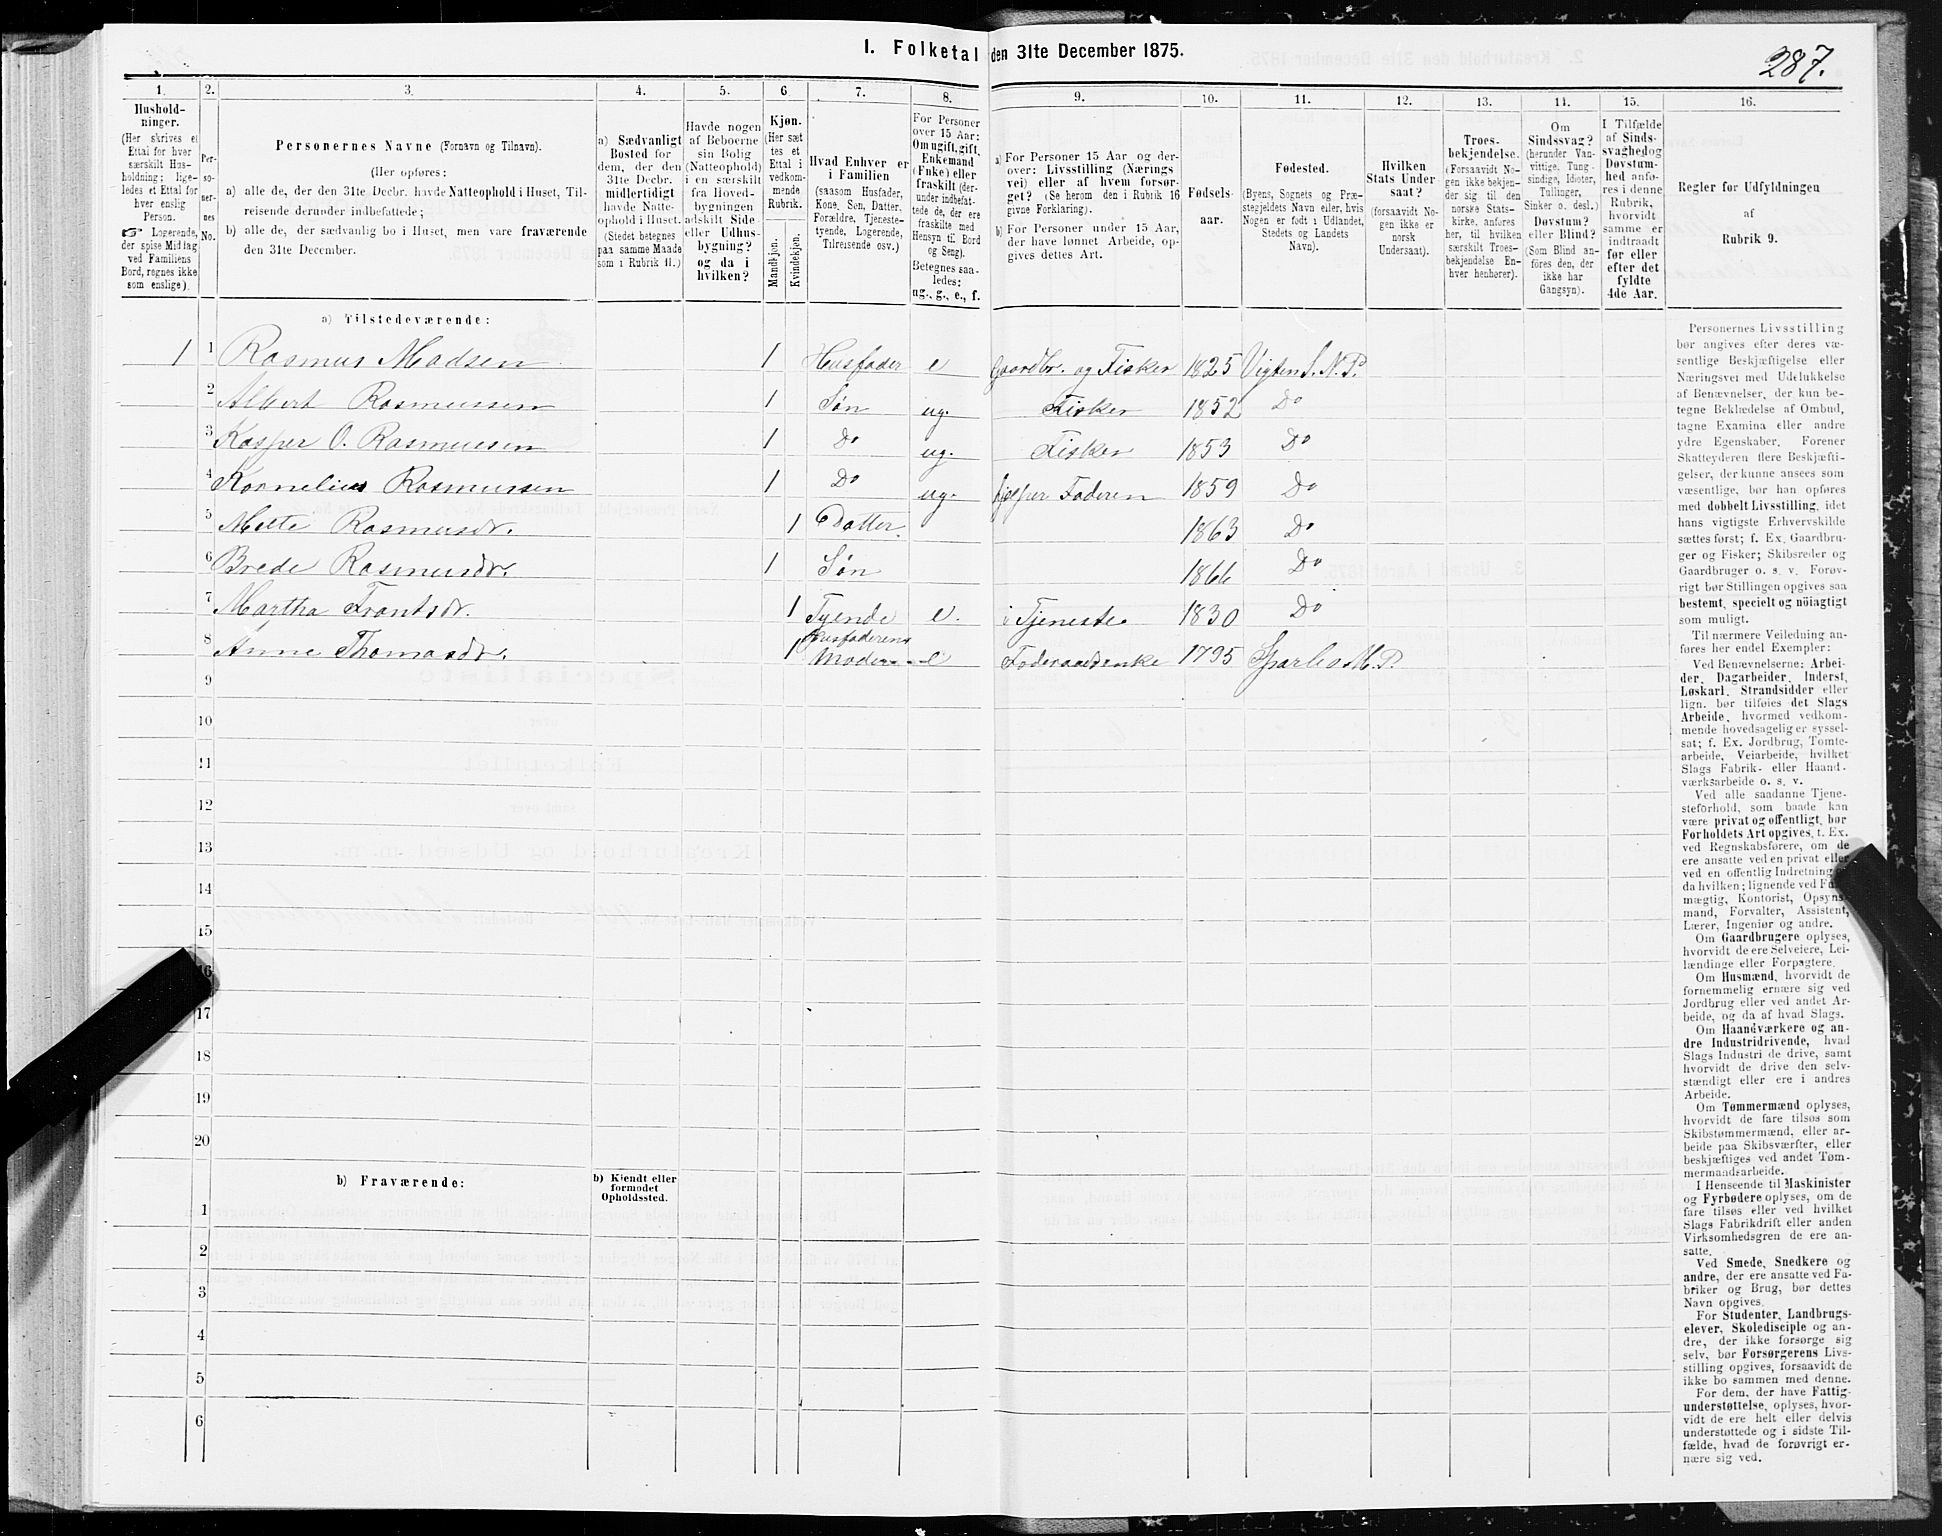 I. Folketal den 31te December 1875.
287.
1. 2. 3. 4. 5. 6. 7. 8. 9. 10. 11. 12. 13. 14. 15. 16.
Hushold-
ninger.
(Her skrives et
Ettal for hver
særskilt Hus-
holdning; lige-
ledes et Ettal for
hver enslig
Person.
☞ Logerende,
der spise Middag
ved Familiens
Bord, regnes ikke
som enslige).
Per-
so-
ner-
nes
No.
Personernes Navne (Fornavn og Tilnavn).
(Her opføres:
a) alle de, der den 31te Decbr. havde Natteophold i Huset, Til-
reisende derunder indbefattede;
b) alle de, der sædvanlig bo i Huset, men vare fraværende
den 31te December.
a) Sædvanligt
Bosted for
dem, der den
31te Decbr.
midlertidigt
havde Natte-
ophold i Huset.
(Stedet betegnes
paa samme Maade
som i Rubrik 11.)
Havde nogen
af Beboerne
sin Bolig
(Natteophold)
i en særskilt
fra Hoved-
bygningen
adskilt Side-
eller Udhus-
bygning?
og da i
hvilken?
Kjøn.
(Her sæt
tes et
Ettal i
vedkom-
mende
Rubrik.
Mandkjøn.
Kvindekjøn.
Hvad Enhver er
i Familien
(saasom Husfader,
Kone, Søn, Datter,
Forældre, Tjeneste-
tyende, Logerende,
Tilreisende osv.)
For Personer
over 15 Aar:
Om ugift, gift,
Enkemand
(Enke) eller
fraskilt (der-
under indbefat-
tede de, der ere
fraskilte med
Hensyn til Bord
og Seng).
Betegnes saa-
ledes:
ug., g., e., f.
a) For Personer 15 Aar og der-
over: Livsstilling (Nærings
vei) eller af hvem forsør-
get? (Se herom den i Rubrik 16
givne Forklaring).
b) For Personer under 15 Aar,
der have lønnet Arbeide, op-
gives dettes Art.
Fødsels-
aar.
Fødested.
(Byens, Sognets og Præ-
stegjeldets Navn eller, hvis
Nogen er født i Udlandet,
Stedets og Landets
Navn).
Hvilken
Stats Under
saat?
(forsaavidt No-
gen ikke er
norsk
Undersaat).
Troes-
bekjendelse.
(Forsaavidt No-
gen ikke bekjen-
der sig til den
norske Stats-
kirke, anføres
her, til hvilken
særskilt Troes-
bekjendelse En-
hver henhører).
Om
Sindssvag?
(herunder Van-
vittige, Tung-
sindige, Idioter,
Tullinger,
Sinker o. desl.)
Døvstum?
eller Blind?
(Som Blind an-
føres den, der
ikke har
Gangsyn).
I Tilfælde
af Sinds-
svaghed og
Døvstum-
hed anfø-
res i denne
Rubrik,
hvorvidt
samme er
indtraadt
før eller
efter det
fyldte
4de Aar.
Regler for Udfyldningen
af
Rubrik 9.
a) Tilstedeværende:
1 1 Rasmus Madsen 1 Husfader e Gaardbr. og Fisker 1825 Vigten S. N. P.
2 Albert Rasmussen 1 Søn ug. Fisker 1852 Do
3 Kasper O. Rasmussen 1 Do ug. Fisker 1853 Do
4 Kornelius Rasmussen 1 Do ug. hjelper Faderen 1859 Do
5 Mette Rasmusdr. 1 Datter 1863 Do
6 Brede Rasmusdr. 1 Søn 1866 Do
7 Martha Frantsdr. 1 Tyende e. i Tjeneste 1830 Do
8 Anne Thomasdr. 1 Husfaderens Moder e Foderaadsenke 1795 Sparbo M. P.
9
10
11
12
13
14
15
16
17
18
19
20
b) Fraværende:
b) Kjendt eller
formodet
Opholdssted.
1
2
3
4
5
6
Personernes Livsstilling
bør angives efter deres væ-
sentlige Beskjæftigelse eller
Næringsvei med Udelukkelse
af Benævnelser, der kun be-
tegne Beklædelse af Ombud,
tagne Examina eller andre
ydre Egenskaber. Forener
Skatteyderen flere Beskjæfti-
gelser, der kunne ansees som
væsentlige, bør han opføres
med dobbelt Livsstilling, idet
hans vigtigste Erhvervskilde
sættes først; f. Ex. Gaardbru-
ger og Fisker; Skibsreder og
Gaardbruger o. s. v. Forøv-
rigt bør Stillingen opgives saa
bestemt, specielt og nöiagtigt
som muligt.
Til nærmere Veiledning an-
føres her endel Exempler:
Ved Benævnelserne: Arbei-
der, Dagarbeider, Inderst,
Løskarl, Strandsidder eller
lign. bør tilføies det Slags
Arbeide, hvormed vedkom-
mende hovedsagelig er syssel-
sat; f. Ex. Jordbrug, Tomte-
arbeide, Veiarbeide, hvilket
Slags Fabrik- eller Haand-
værksarbeide o. s. v.
Ved alle saadanne Tjene-
steforhold, som baade kan
være privat og offentligt, bør
Forholdets Art opgives, t. Ex.
ved Regnskabsførere, om de
ere ansatte ved en privat eller
ved en offentlig Indretning og
da hvilken; lignende ved Fuld-
mægtig, Kontorist, Opsyns-
mand, Forvalter, Assistent,
Lærer, Ingeniør og andre.
Om Gaardbrugere oplyses,
hvorvidt de ere Selveiere, Lei-
lændinge eller Forpagtere.
Om Husmænd, hvorvidt de
fornemmelig ernære sig ved
Jordbrug eller ved andet Ar-
beide, og da af hvad Slags.
Om Haandværkere og an-
dre Industridrivende, hvad
Slags Industri de drive, samt
hvorvidt de drive den selv-
stændigt eller ere i andres
Arbeide.
Om Tømmermænd oplyses,
hvorvidt de fare tilsøs som
Skibstømmermænd, eller ar-
beide paa Skibsværfter, eller
beskjæftiges ved andet Tøm-
mermandsarbeide.
I Henseende til Maskinister
og Fyrbødere oplyses, om de
fare tilsøs eller ved hvilket
Slags Fabrikdrift eller anden
Virksomhedsgren de ere an-
satte.
Ved Smede, Snedkere og
andre, der ere ansatte ved Fa-
briker og Brug, bør dettes
Navn opgives.
For Studenter, Landbrugs-
elever, Skoledisciple og an-
dre, der ikke forsørge sig
selv, bør Forsørgerens Livs-
stilling opgives, forsaavidt de
ikke bo sammen med denne.
For dem, der have Fattig-
understøttelse, oplyses, hvor-
vidt de ere helt eller delvis
understøttede og i sidste Til-
fælde, hvad de forøvrigt er-
nære sig ved.